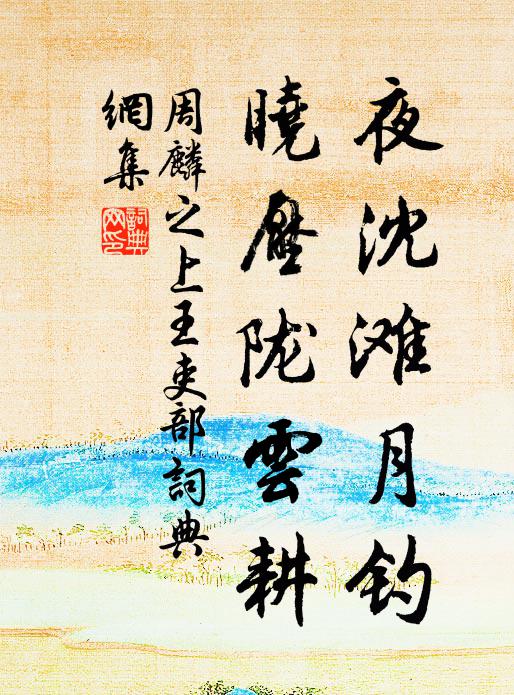 夜沈滩月钓
晓壓陇雲耕
周麟之上王吏部詞典
網集
詞典
网印